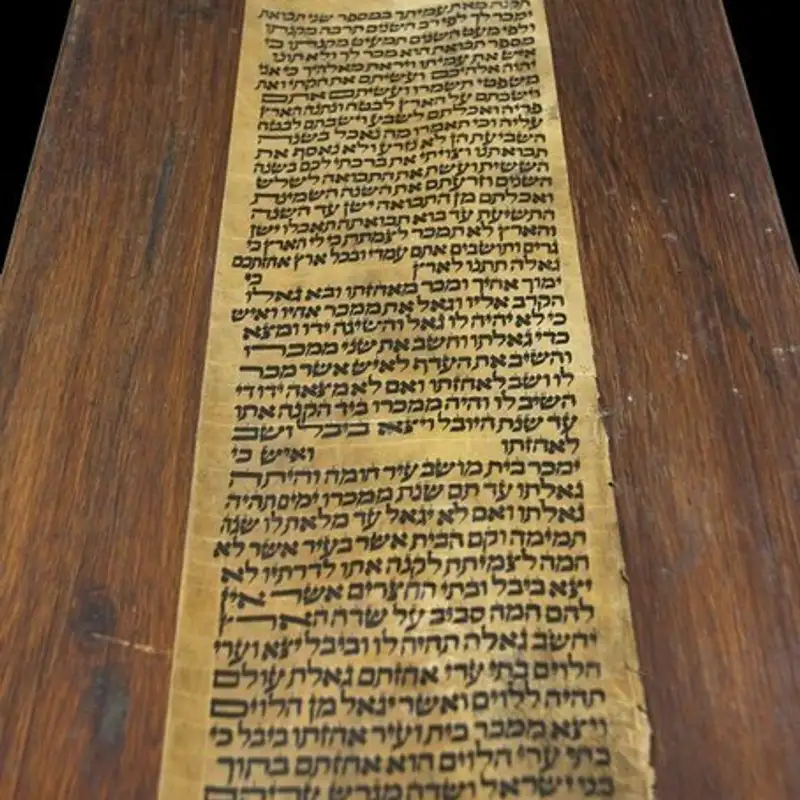 תקנה מאת עמיתך במספר שני תבואת
ימכר לך לפי רב השנים תרבה מקנתו
ולפי מעט השנים תמעיט מקנתו כי
מספר תבואת הוא מכר לך ולא תונו
איש את עמיתו ויראת מאלהיך כי אני
יהוה אלהיכם ועשיתם את חקתי ואת
משפטי תשמרו ועשיתם אתם
וישבתם על הארץ לבטח ונתנה הארץ
פריה ואכלתם לשבע וישבתם לבטח
עליה וכי תאמרו מה נאכל בשנה
השביעת הן לא נזרע ולא נאסף את
תבואתנו וצויתי את ברכתי לכם בשנה
הששית ועשת את התבואה לשלש
השנים וזרעתם את השנה השמינת
ואכלתם מן התבואה ישן עד השנה
התשיעת עד בוא תבואתה תאכלו ישן
והארץ לא תמכר לצמתת כי לי הארץ כי
גרים ותושבים אתם עמדי ובכל ארץ אחזתכם
גאלה תתנו לארץ כי
ימוך אחיך ומכר מאחזתו ובא גאלו
הקרב אליו וגאל את ממכר אחיו ואיש
כי לא יהיה לו גאל והשיגה ידו ומצא
כדי גאלתו וחשב את שני ממכרו
והשיב את העדף לאיש אשר מכר
לו ושב לאחזתו ואם לא מצאה ידו די
השיב לו והיה ממכרו ביד הקנה אתו
עד שנת היובל ויצא ביבל ושב
לאחזתו ואיש כי
ימכר בית מושב עיר חומה והיתה
גאלתו עד תם שנת ממכרו ימים תהיה
גאלתו ואם לא יגאל עד מלאת לו שנה
תמימה וקם הבית אשר בעיר אשר לא
חמה לצמיתת לקנה אתו לדרתיו לא
יצא ביבל ובתי החצרים אשר אין
להם חמה סביב על שדה הארץ
יחשב גאלה תהיה לו וביבל יצא וערי
הלוים בתי ערי אחזתם גאלת עולם
תהיה ללוים ואשר יגאל מן הלוים
ויצא ממכר בית ועיר אחזתו ביבל כי
בתי ערי הלוים הוא אחזתם בתוך
בני ישראל ושדה מגרש עריהם